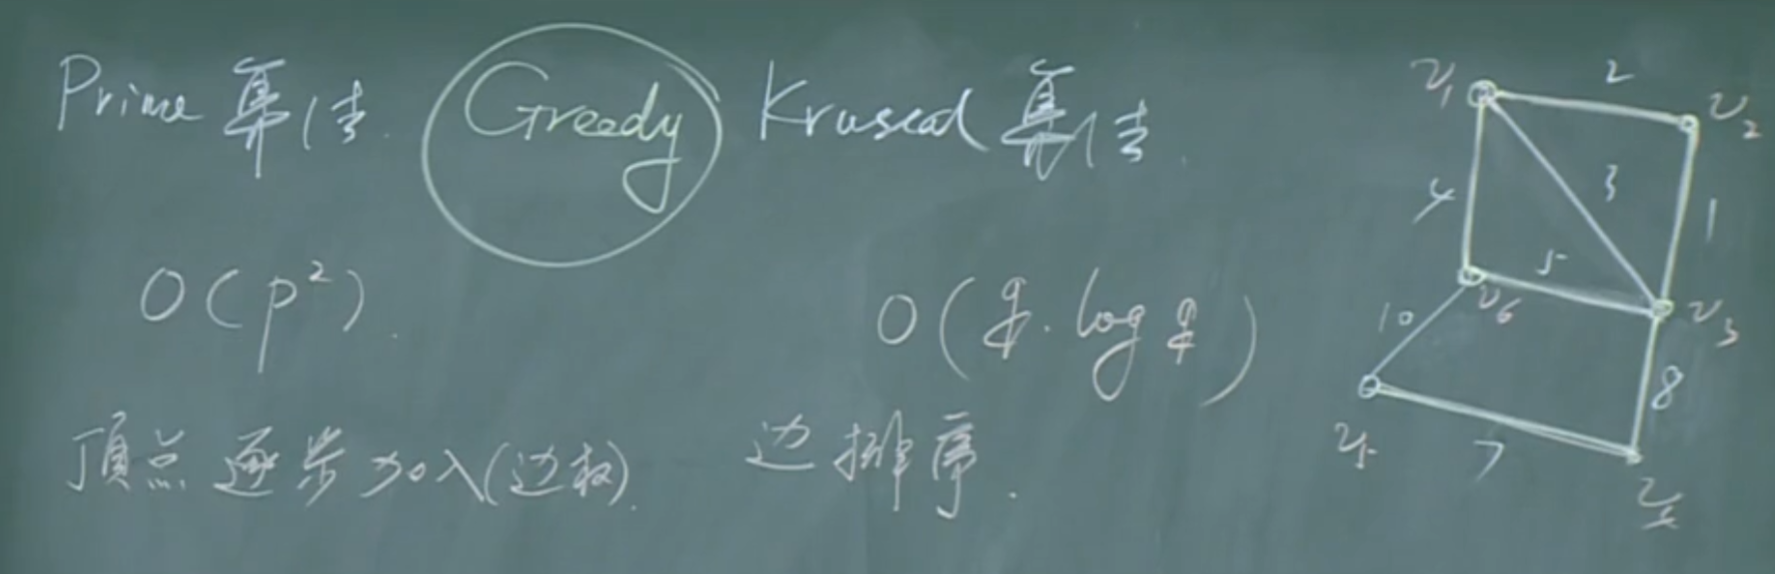 Prime 算法. Greedy Kruscal 算法.
O(p²). O(q·log q)
頂点逐步加入(边权). 边排序.
v₁ 2 v₂
4 3 1
5
10 v₆ v₃
8
v₅ 7